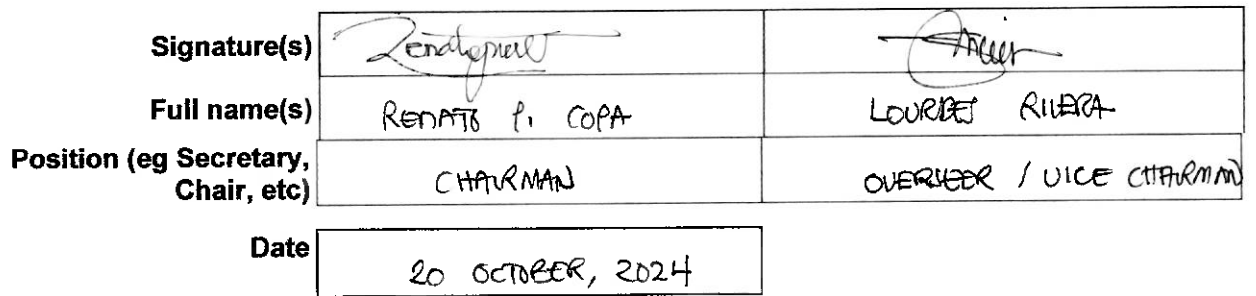 Signature(s)
Full name(s) RENATO P. COPA LOURDES RIVERA
Position (eg Secretary,
Chair, etc) CHAIRMAN OVERSEER / VICE CHAIRMAN
Date 20 OCTOBER, 2024